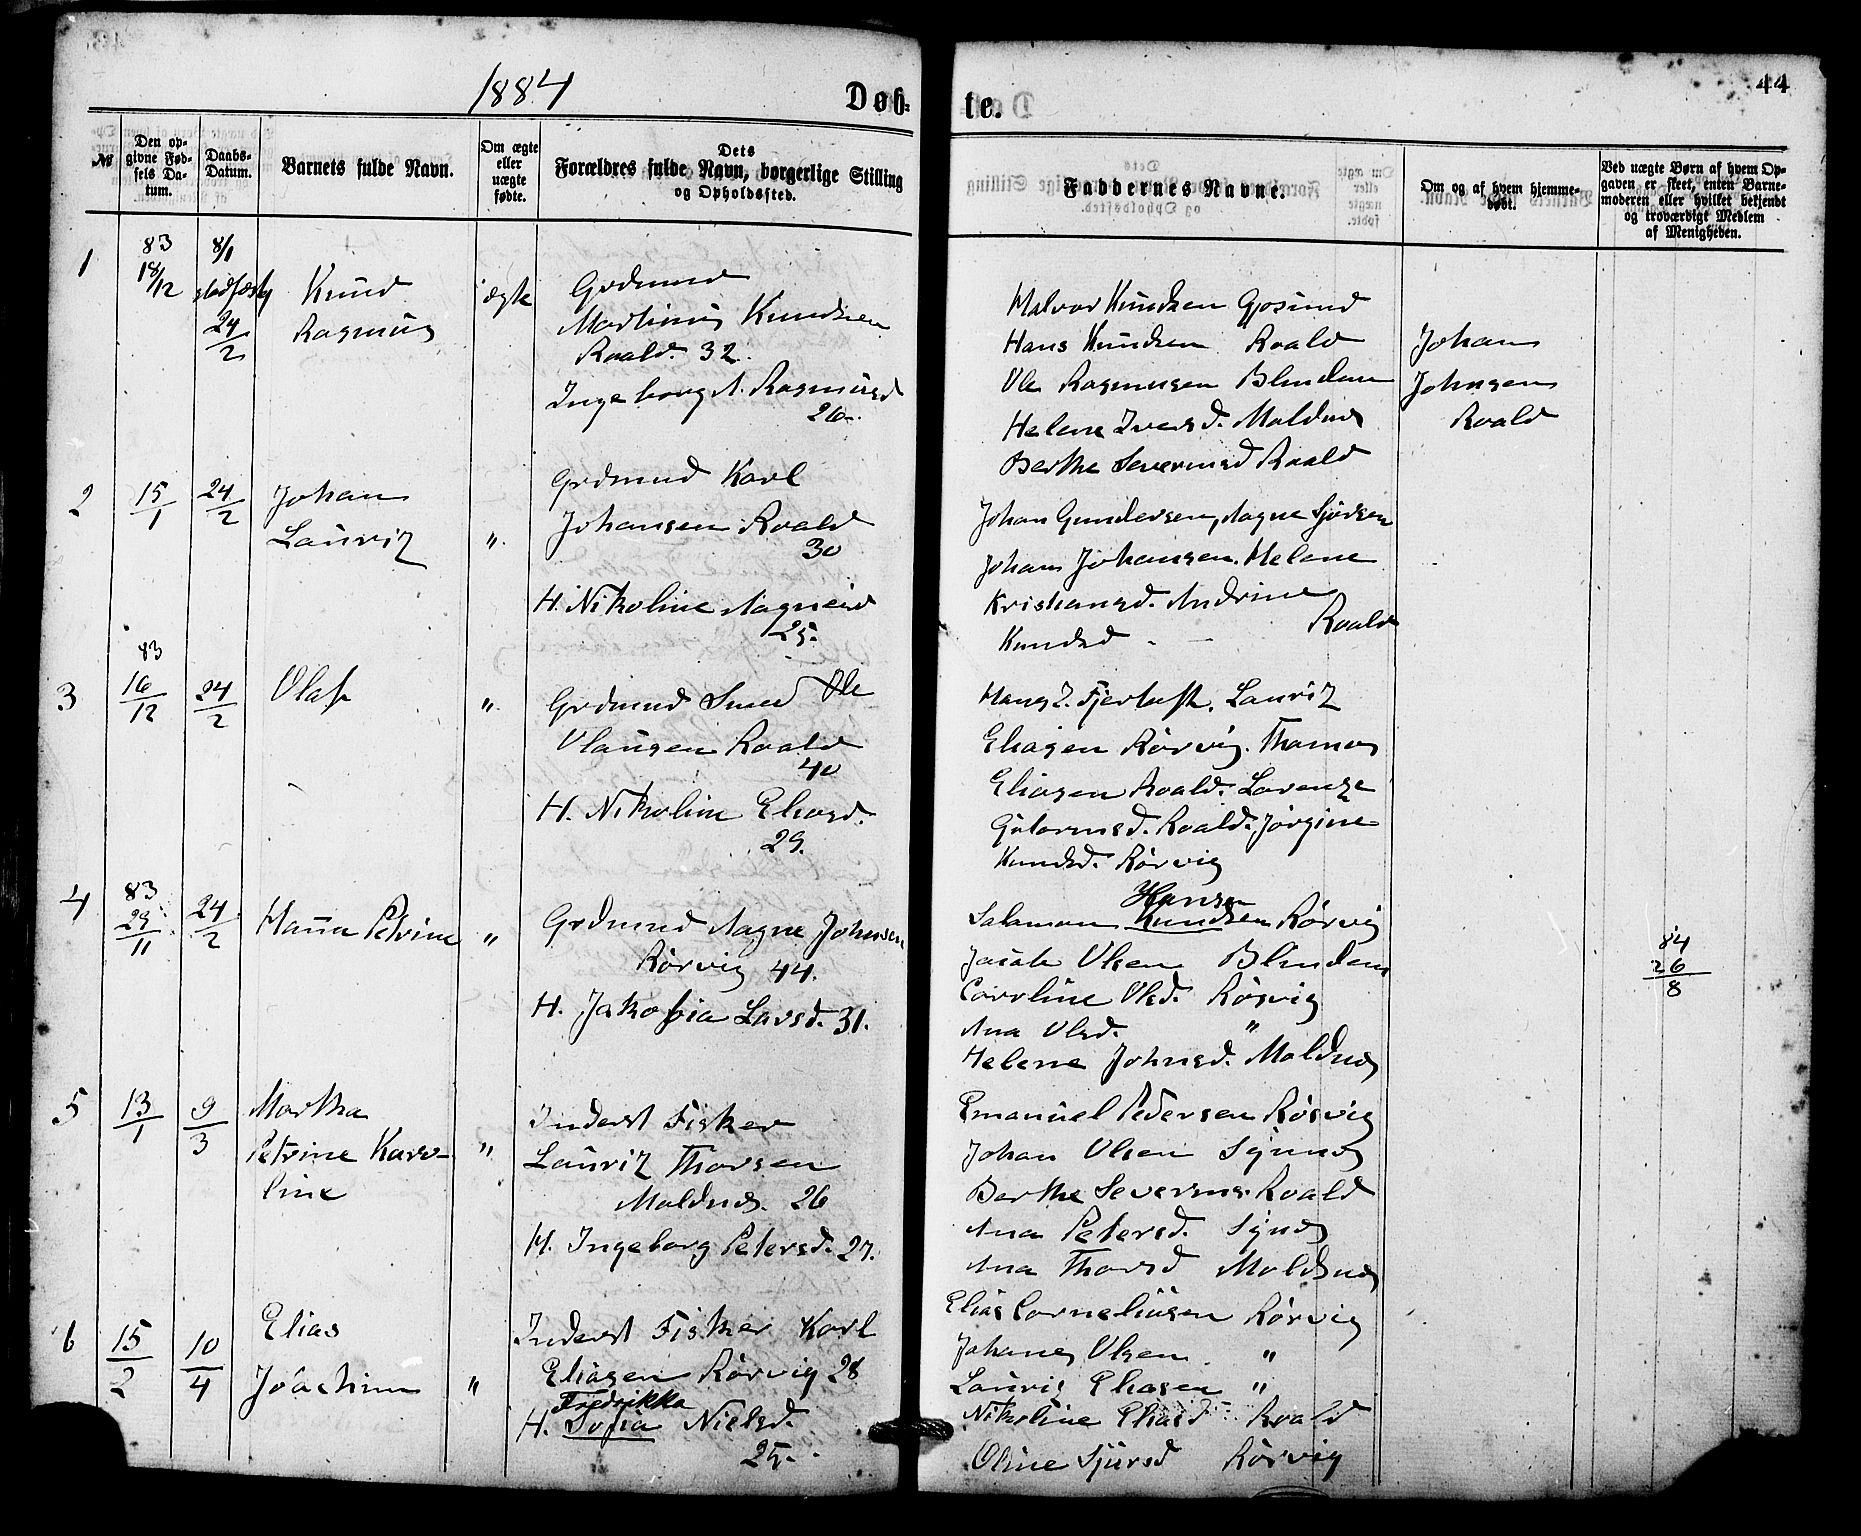 1884
Døb-
te.
44
№
Den op-
givne Fød-
sels Da-
tum.
Daabs-
Datum.
Barnets fulde Navn.
Om ægte
eller
uægte
fødte.
Dets
Forældres fulde Navn, borgerlige Stilling
og Opholdssted.
Faddernes Navne.
Om og af hvem hjemme-
døbt.
Ved uægte Børn af hvem Op-
gaven er skeet, enten Barne-
moderen eller hvilket bekjendt
og troværdigt Medlem
af Menigheden.
1
83
18/12
8/1
stadfæst
24/2
Knud
Rasmus
ægte
Grdmand
Martinus Knudsen
Roald. 32.
Ingeborg A. Rasmusd
26.
Halvor Knudsen Gjosund
Hans Knudsen Roald
Ole Rasmusen Blindem
Helene Iversd. Moldnæs
Berthe Severinsd Roald
Johan
Johnsen
Roald
2
15/1
24/2
Johan
Lauritz
"
Grdmand Karl
Johansen Roald
30
H. Nikoline Aagnesd
25.
Johan Gundersen, Aagne Sjørsen
Johan Johansen. Helene
Kristiansd. Andrine
Knudsd - - Roald
3
83
16/12
24/2
Olaf
"
Grdmand Smed Ole
Olausen Roald
40
H. Nikoline Eliasd.
29.
Hans I. Fjertoft. Lauritz
Eliasen Rørvig. Thomas
Eliasen Roald. Lorense
Gutormsd. Roald. Jørgine
Knudsd. Rørvig
4
83
29/11
24/2
Hanna Petrine
"
Grdmand Aagne Johnsen
Rørvig 44.
H. Jakobia Larsd. 31.
Hansen
Salamon Knudsen Rørvig
Jacob Olsen Blindem
Caroline Olsd. Rørvig
Ana Olsd. "
Helene Johnsd. Moldnæs
84
26/8
5
13/1
9/3
Martha
Petrine Karo-
line
"
Inderst Fisker
Lauritz Thorsen
Moldnæs. 26
H. Ingeborg Petersd. 27.
Emanuel Pedersen Rørvig
Johan Olsen Synnes
Berthe Severins. Roald
Ana Petersd. Synes
Ana Thorsd Moldsnæs
6
15/2
10/4
Elias
Joachim
"
Inderst Fisker Karl
Eliasen Rørvig 28
Fredrikka
H. Sofia Nielsd.
25.
Elias Corneliusen Rørvig
Johanes Olsen "
Lauris Eliasen "
Nikoline Eliasd Roald
Oline Sjursd Rørvig